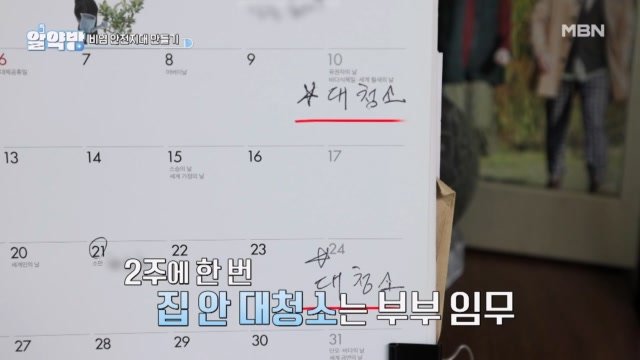 알약방
비염 안전지대 만들기
MBN
6 7 8 9 10
대체공휴일 어버이날 유권자의 날
바다식목일 · 세계 철새의 날
☆ 대청소
13 14 15 16 17
스승의 날
세계 가정의 날
20 21 22 23 24
세계인의 날 소만
☆ 대청소
2주에 한 번
집 안 대청소는 부부 임무
27 28 29 30 31